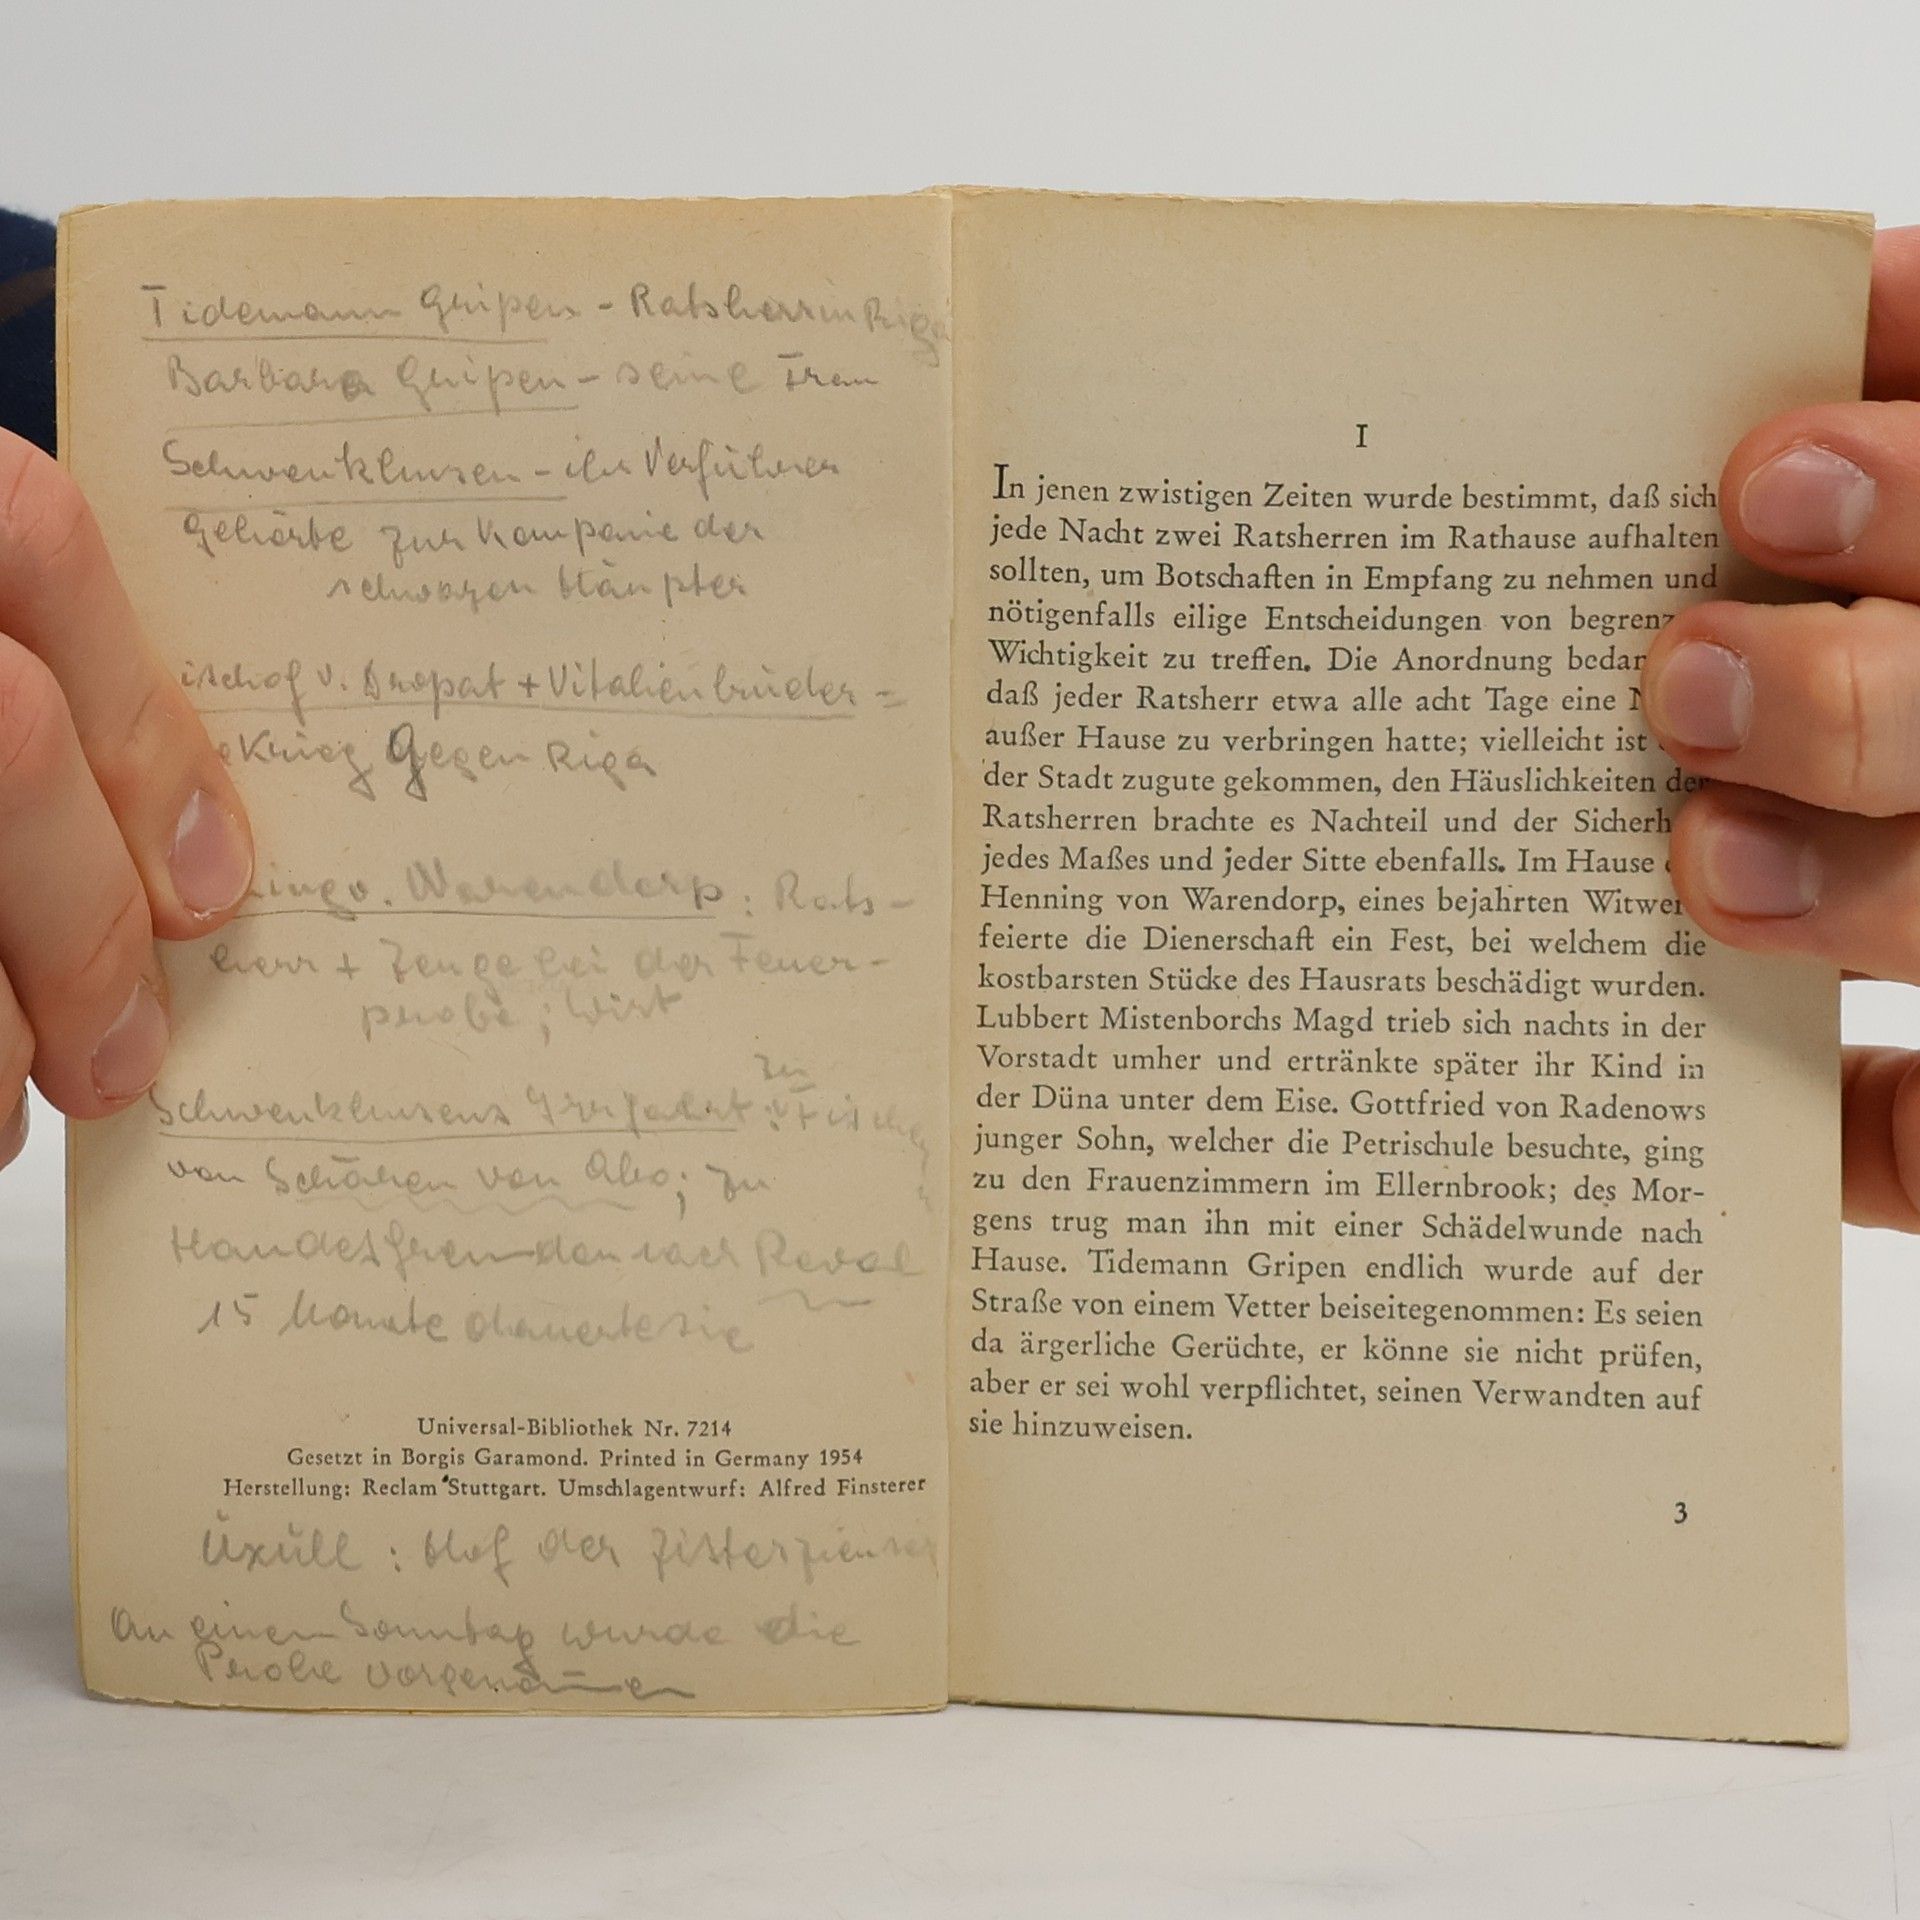 Tidemann Gripen - Ratsherr in Riga
Barbara Gripen - seine Frau
Schwenkhusen - ihr Verführer
Gehörte zur Kompanie der
schwarzen Häupter
v. Dropat + Vitalienbrüder =
Krieg gegen Riga
v. Warendorp : Rats-
herr + Zeuge bei der Feuer-
probe ; Wirt
Schwenkhusens Irrfahrt : zu
von Schären von Abo; zu
Handelsfreunden nach Reval
15 Monate dauerte sie
Universal-Bibliothek Nr. 7214
Gesetzt in Borgis Garamond. Printed in Germany 1954
Herstellung: Reclam Stuttgart. Umschlagentwurf: Alfred Finsterer
Üxüll : Hof der Zisterzienser
An einem Sonntag wurde die
Probe vorgenommen
I
In jenen zwistigen Zeiten wurde bestimmt, daß sich
jede Nacht zwei Ratsherren im Rathause aufhalten
sollten, um Botschaften in Empfang zu nehmen und
nötigenfalls eilige Entscheidungen von begrenz
Wichtigkeit zu treffen. Die Anordnung bedan
daß jeder Ratsherr etwa alle acht Tage eine N
außer Hause zu verbringen hatte; vielleicht ist
der Stadt zugute gekommen, den Häuslichkeiten der
Ratsherren brachte es Nachteil und der Sicherh
jedes Maßes und jeder Sitte ebenfalls. Im Hause
Henning von Warendorp, eines bejahrten Witwer
feierte die Dienerschaft ein Fest, bei welchem die
kostbarsten Stücke des Hausrats beschädigt wurden.
Lubbert Mistenborchs Magd trieb sich nachts in der
Vorstadt umher und ertränkte später ihr Kind in
der Düna unter dem Eise. Gottfried von Radenows
junger Sohn, welcher die Petrischule besuchte, ging
zu den Frauenzimmern im Ellernbrook; des Mor-
gens trug man ihn mit einer Schädelwunde nach
Hause. Tidemann Gripen endlich wurde auf der
Straße von einem Vetter beiseitegenommen: Es seien
da ärgerliche Gerüchte, er könne sie nicht prüfen,
aber er sei wohl verpflichtet, seinen Verwandten auf
sie hinzuweisen.
3